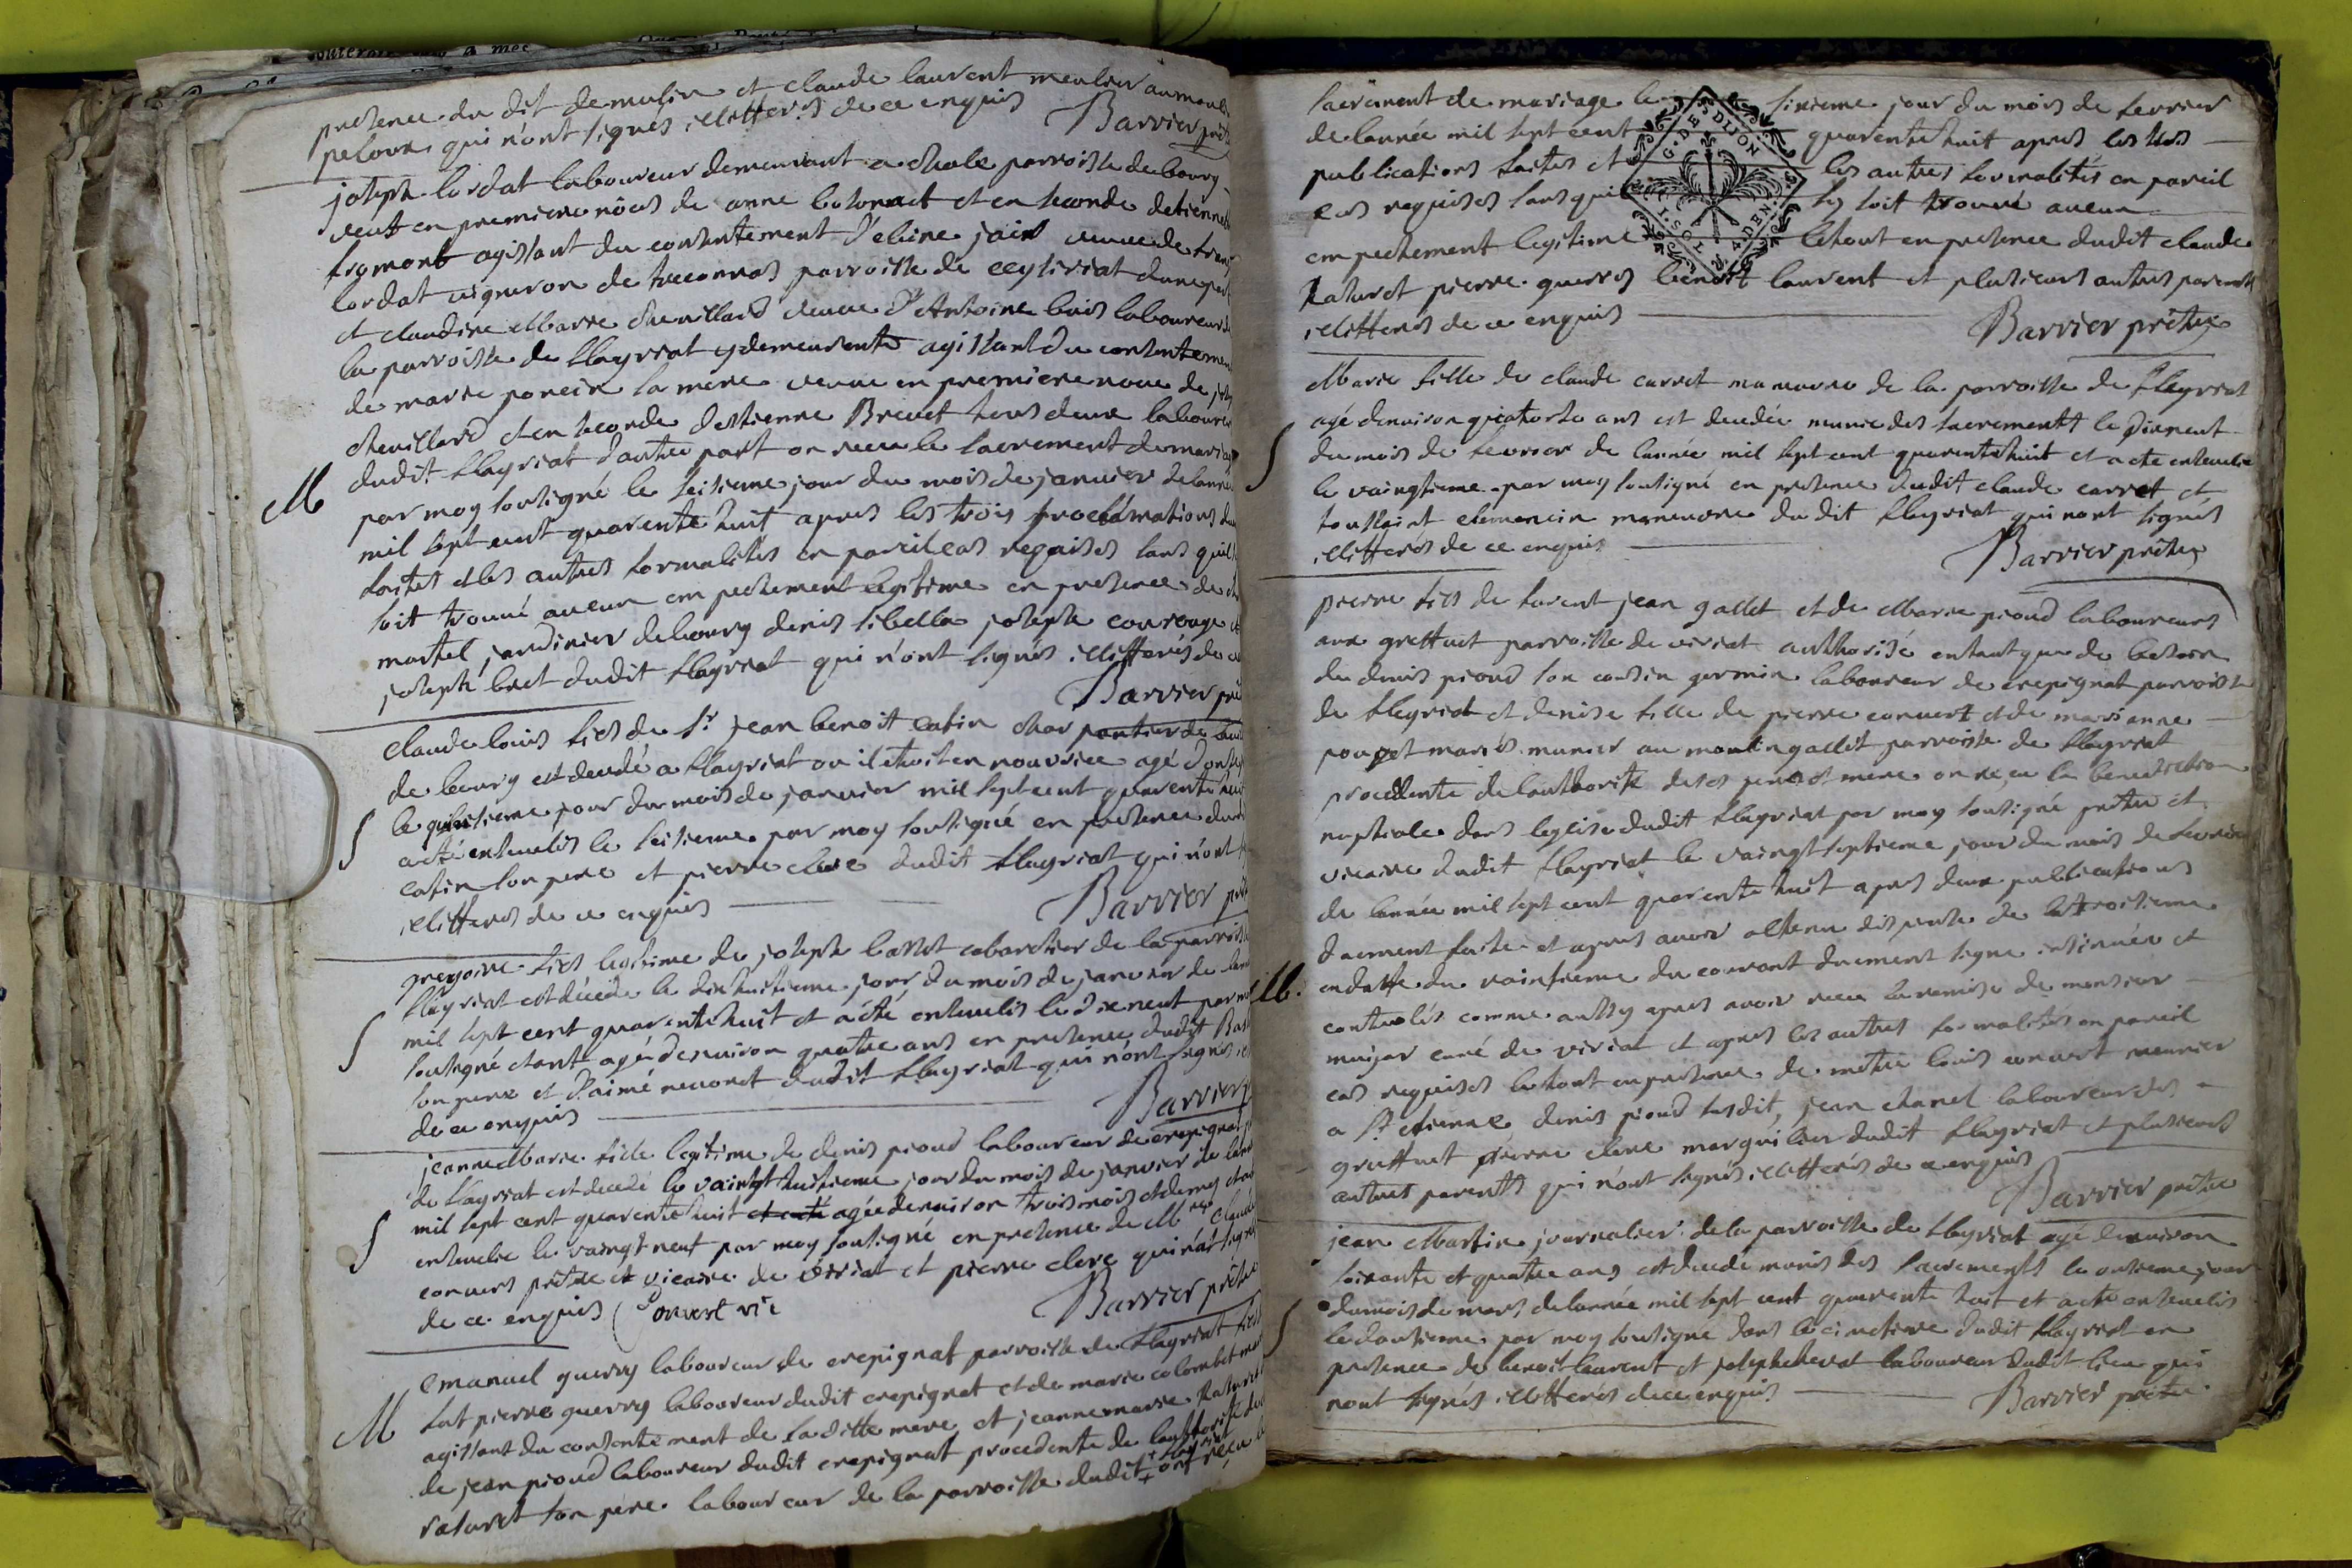 presence du dit demulin et claude laurent meulier au moul
peloux qui n'ont signés illitterés de ce enquis Barrier prêt
joseph lordat laboureur demeurant a chale parroisse de bourg
veuf en premiere nôces de anne et en seconde detienne
fromont agissant du consentement d'eleine join veuve de fran
lordat vigneron de parroisse de ceyseriat dune part
et claudine Marie chevillard veuve d'Antoine buis laboureur de
la parroisse de fleyriat y demeurente agissant du consenteme
de marie poncin sa mere veuve en premiere noce de jos
chevillard et en seconde d'estienne Brevet tous deux laboure
dudit fleyriat d'autre part on receu le sacrement de maria
M par moy soussigné le seisieme jour du mois de janvier de lanné
mil sept cent quarente huit apres les trois proclamations du
faites et les autres formalités en pareil cas requises sans quil
soit trouvé aucun empechement legitime en presence de
martel jardinier debourg denis sibella joseph courage et
joseph bret dudit fleyriat qui n'ont signés illitterés de ce
Barrier prê
claude louis fils du Sr jean benoit catin charpantier de
de bourg est decedé a fleyriat ou il etoit en nourrice agé d'onse
le quinsieme jour du mois de janvier mil sept cent quarente hui
a eté enseuelis le seisieme par moy soussigné en presence dudi
catin son pere et pierre clere dudit fleyriat qui n'ont
illitterés de ce enquis Barrier prêt
gregoire fils legitime de joseph basset cabaretier de la parroiss
fleyriat est décédé le dix huitieme jour du mois de janvier de lann
mil sept cent quarente huit et a été enseuelis le dix neuf par mo
soussigné etant agé d'enuiron quatre ans en presence dudit Bas
son pere et d'aimé neconet dudit fleyriat qui n'ont signés
de ce enquis Barrier
jeanne Marie fille legitime de denis pioud laboureur de crepignat
de fleyriat est decedé le vaingt huitieme jour du mois de janvier de lann
mil sept cent quarente huit et eté agée denuiron trois mois et demy
enseuelie le vaingt neuf par moy soussigné en presence de Mre claude
conuers prêtre et vicaire de viriat et pierre clere qui n'at signé
de ce enquis Convert vic Barrier prêtre
M emanuel guerry laboureur de crepignat parroisse de fleyriat fils
fut pierre guerry laboureur dudit crepignat et de marie colombet
agissant du consentement de sa ditte mere et jeanne marie
de jean pioud laboureur dudit crepignat procedente de lauthorité de
son pere laboureur de la parroisse dudit fleyriat ont reçu le
sacrement de mariage le sixieme jour du mois de fevrier
de lannée mil sept cent quarente huit apres les trois
publications faites et les autres formalités en pareil
cas requises sans qui sy soit trouvé aucun
empechement legitime le tout en presence dudit claude
pierre guerres benoit laurent et plusieurs autres parents
illitterés de ce enquis
G. DE DIJON
I. SOL 4 DEN.
Barrier prêtre
Marie fille de claude carret maneuvre de la parroisse de fleyriat
agé denuiron quatorse ans est decedée munie des sacrements le dixneuf
du mois de feuvrier de lannée mil sept cent quarente huit et a eté enseuelie
le vaingtieme par moy soussigné en presence dudit claude carret et
toussaint clemencin maneuvre du dit fleyriat qui n'ont signés
illitterés de ce enquis Barrier prêtre
pierre fils de furent jean gallet et de Marie pioud laboureurs
aux greffuet parroisse de viriat authorisé en tant que de besoin
de denis pioud son cousin germin laboureur de crepignat parroisse
de fleyriat et denise fille de pierre convert et de marianne
poupet mariés munier au moulin gallet parroisse de fleyriat
procedente de lauthorité de ses pere et mere on reçu la benediction
nuptiale dans leglise dudit fleyriat par moy soussigné prêtre et
vicaire dudit fleyriat le vaingt septieme jour du mois de feuvrier
de lannée mil sept cent quarente huit apres deux publications
duement faite et apres avoir obtenu dispense de la troisieme
M. en datte du vaintieme du courant duement signé insinuée et
controlés comme aussy apres avoir receu la remise de monsieur
mujar curé de viriat et apres les autres formalités en pareil
cas requises le tout en presence de metre louis convert meunier
a St etienne denis pioud susdit, jean chanel laboureur des
greffuet pierre clere marguilier dudit fleyriat et plusieurs
autres parents qui n'ont signés illitterés de ce enquis
Barrier prêtre
jean Martin journalier de la parroisse de fleyriat agé denuiron
soixante et quatre ans est decedé munis des sacrements le onsieme jour
du mois de mars de lannée mil sept cent quarente huit et a eté enseuelis
le dousieme par moy soussigné dans le cimetiere dudit fleyriat en
presence de benoit laurent et joseph laboureur dudit lieu qui
n'ont signés illitterés de ce enquis Barrier prêtre